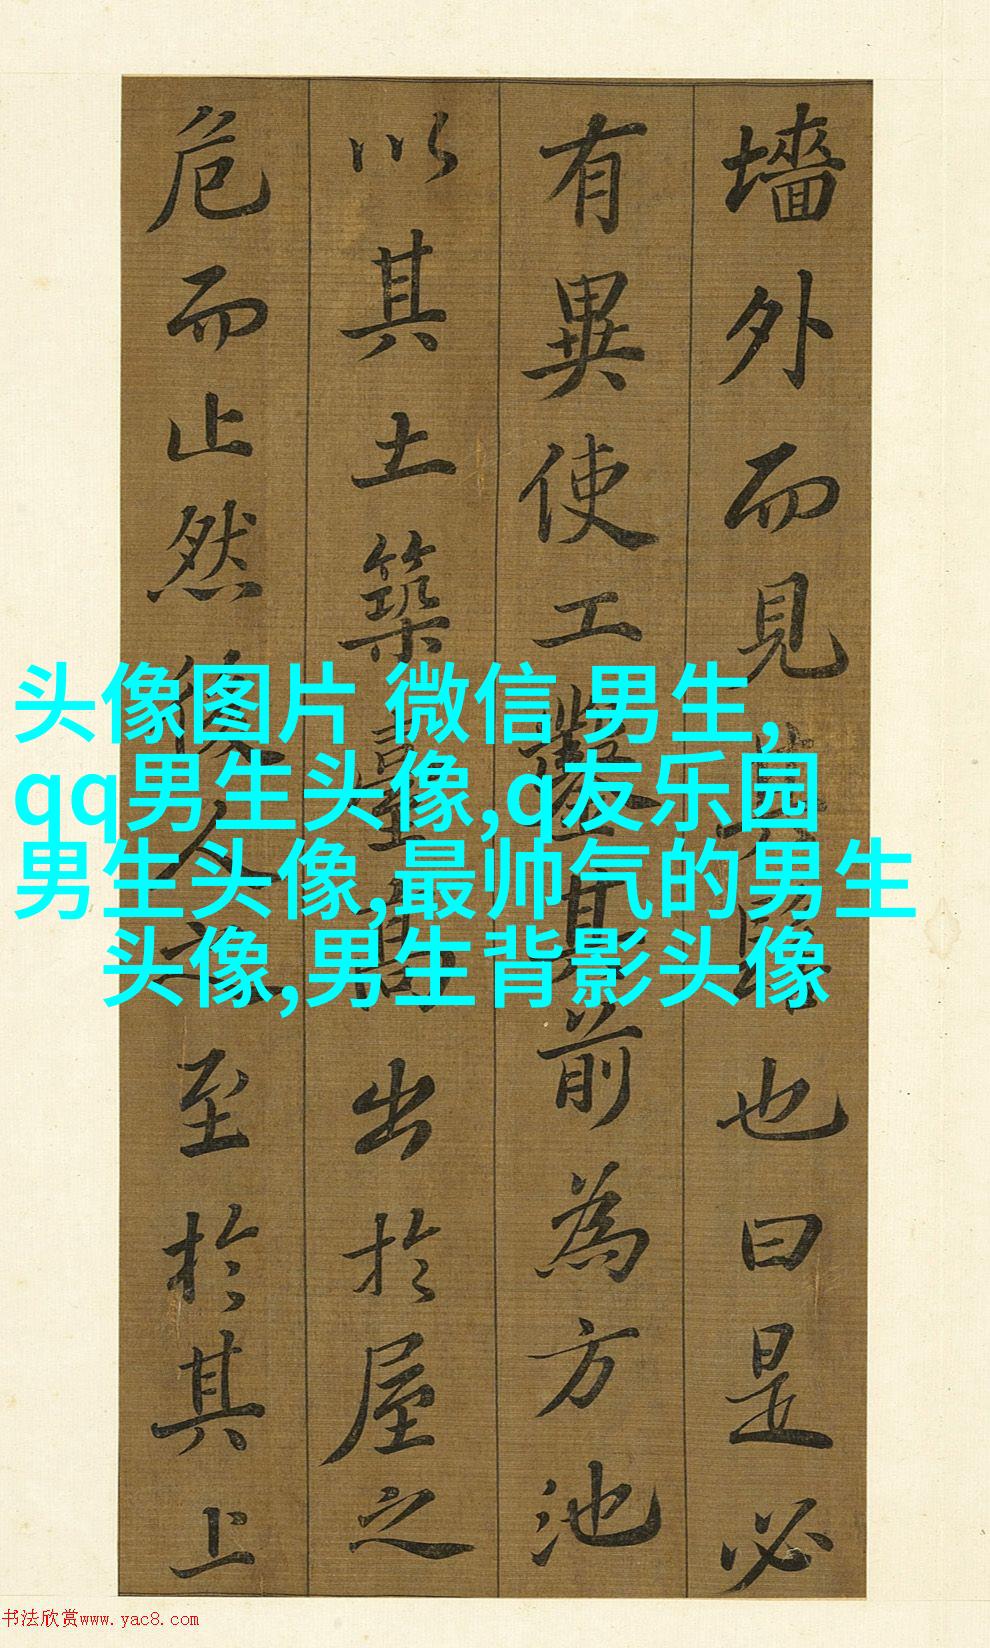 墻外而見其髻也曰是必
有異使工鑿其前為方池
以其土築臺高出於屋之
危而止然後人之至於其上
头像图片 微信 男生,
qq男生头像,q友乐园
男生头像,最帅气的男生
头像,男生背影头像
书法欣赏www.yac8.com